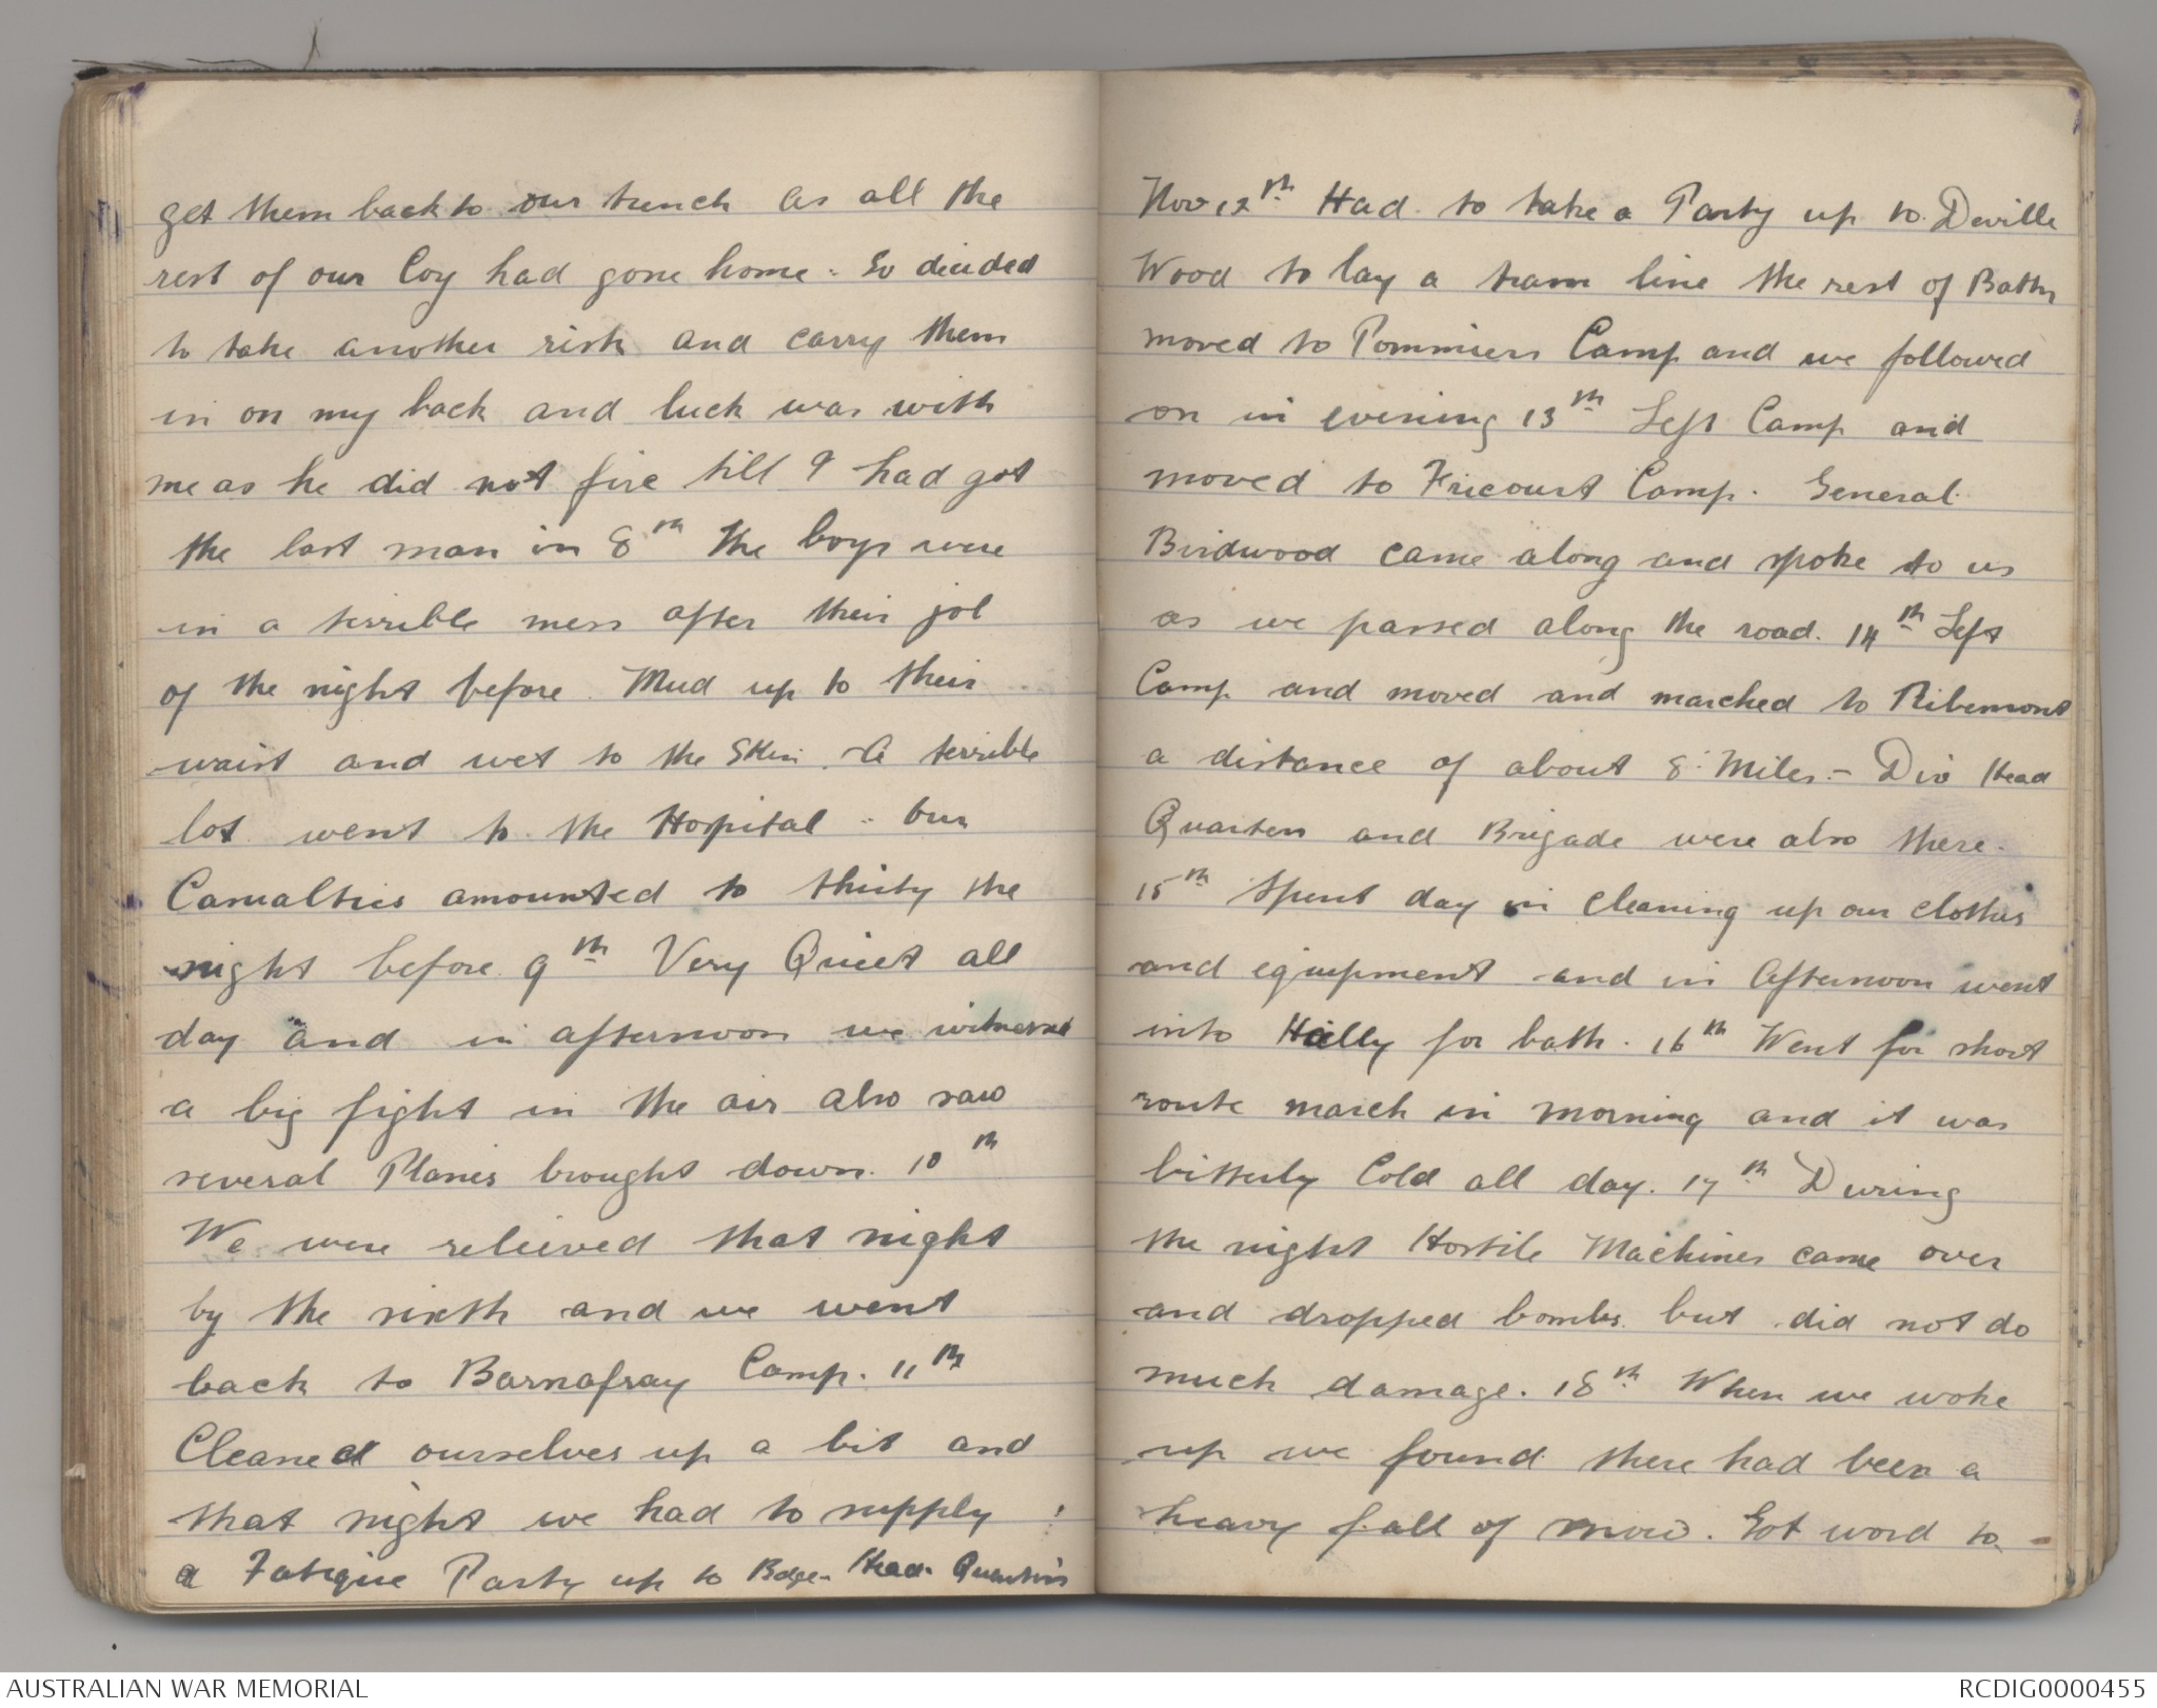 get them back to our trench as all the
rest of our Coy had gone home. So decided
to take another risk and carry them
in on my back and luck was with
me as he did not fire till I had got
the last man in 8th The boys were
in a terrible mess after their job
of the night before. Mud up to their
waist and wet to the Skin. A terrible
lot went to the Hospital - our
Casualties amounted to thirty the
night before. 9th Very Quiet all
day and in afternoon we witnessed
a big fight in the air also saw
several Planes brought down. 10th
We were relieved that night
by the sixth and we went
back to Barnafray Camp. 11th
Cleaned ourselves up a bit and
that night we had to supply
a Fatigue Party up to Bdge. Head. Quarters
Nov 12th Had to take a Party up to Deville
Wood to lay a tram line the rest of Battn
moved to Pommiers Camp and we followed
on in evening 13th Left Camp and
moved to Fricourt Camp. General
Birdwood came along and spoke to us
as we passed along the road. 14th Left
Camp and moved and marched to Ribemont
a distance of about 8 Miles. - Div Head
Quarters and Brigade were also there.
15th Spent day in cleaning up our clothes
and equipment and in Afternoon went
into Heilly for bath. 16th Went for short
route march in morning and it was
bitterly Cold all day. 17th During
the night Hostile Machines came over
and dropped bombs but did not do
much damage. 18th When we woke
up we found there had been a
heavy fall of snow. Got word to
AUSTRALIAN WAR MEMORIAL
RCDIG0000455